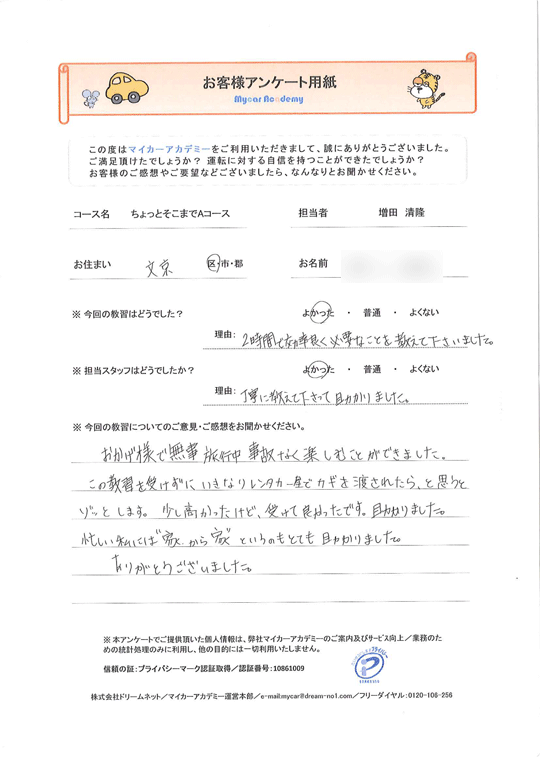 お客様アンケート用紙
Mycar Academy
この度はマイカーアカデミーをご利用いただきまして、誠にありがとうございました。
ご満足頂けたでしょうか？ 運転に対する自信を持つことができたでしょうか？
お客様のご感想やご要望などございましたら、なんなりとお聞かせください。
コース名 ちょっとそこまでAコース 担当者 増田 清隆
お住まい 文京 区・市・郡 お名前
※ 今回の教習はどうでした？ よかった ・ 普通 ・ よくない
理由: 2時間で効率良く必要なことを教えて下さいました。
※ 担当スタッフはどうでしたか？ よかった ・ 普通 ・ よくない
理由: 丁寧に教えて下さって助かりました。
※ 今回の教習についてのご意見・ご感想をお聞かせください。
おかげ様で無事旅行中事故なく楽しむことができました。
この教習を受けずにいきなりレンタカー屋でカギを渡されたら、と思うと
ゾッとします。少し高かったけど、受けて良かったです。助かりました。
忙しい私には"家から家"というのもとても助かりました。
ありがとうございました。
※ 本アンケートでご提供頂いた個人情報は、弊社マイカーアカデミーのご案内及びサービス向上／業務のた
めの統計処理のみに利用し、他の目的には一切利用いたしません。
信頼の証：プライバシーマーク認証取得／認証番号：10861009
株式会社ドリームネット／マイカーアカデミー運営本部／e-mail:mycar@dream-no1.com／フリーダイヤル：0120-106-256